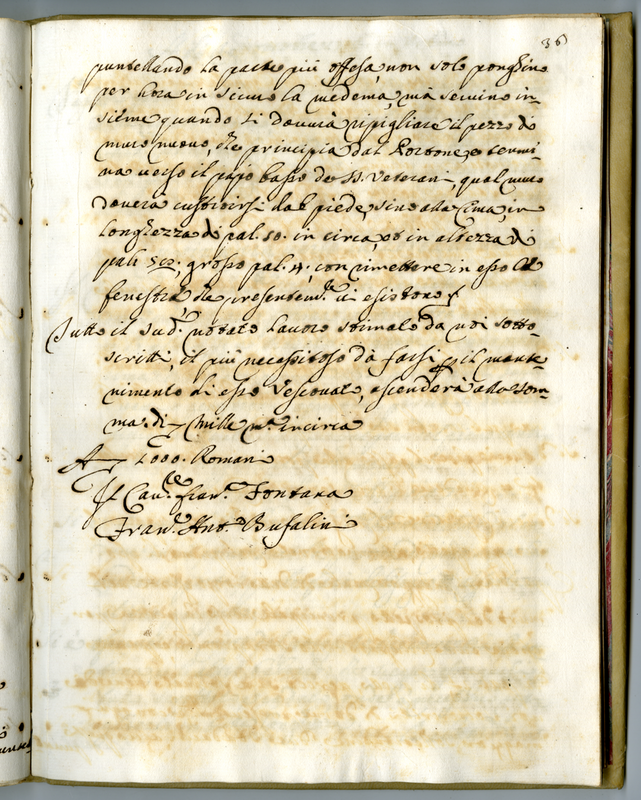 36
puntellando la parte più offesa, non solo ponghino
per hora in sicuro la medema, mà servino in-
sieme quando si dovrà ripigliare il pezzo di
muro nuovo, che principia dal Portone, e termi-
na verso il basso de SS. Veterani, qual muro
doverà costruirsi dal piede, sino alla cima, in
longhezza di pal. 50. in circa, et in altezza di
palmi grosso pal. 4, con rimettere in esso le
fenestre che presentem.te vi esistono
Tutto il sud.o notato lavoro stimato da noi sotto-
scritti, il più necessitoso da farsi il mante-
nimento di esso Vescovato, ascenderà alla som-
ma di mille m.ta incirca
1000. Romani
Il Cav.re Fran.co Fontana
Fran.co Ant.o Bufalini